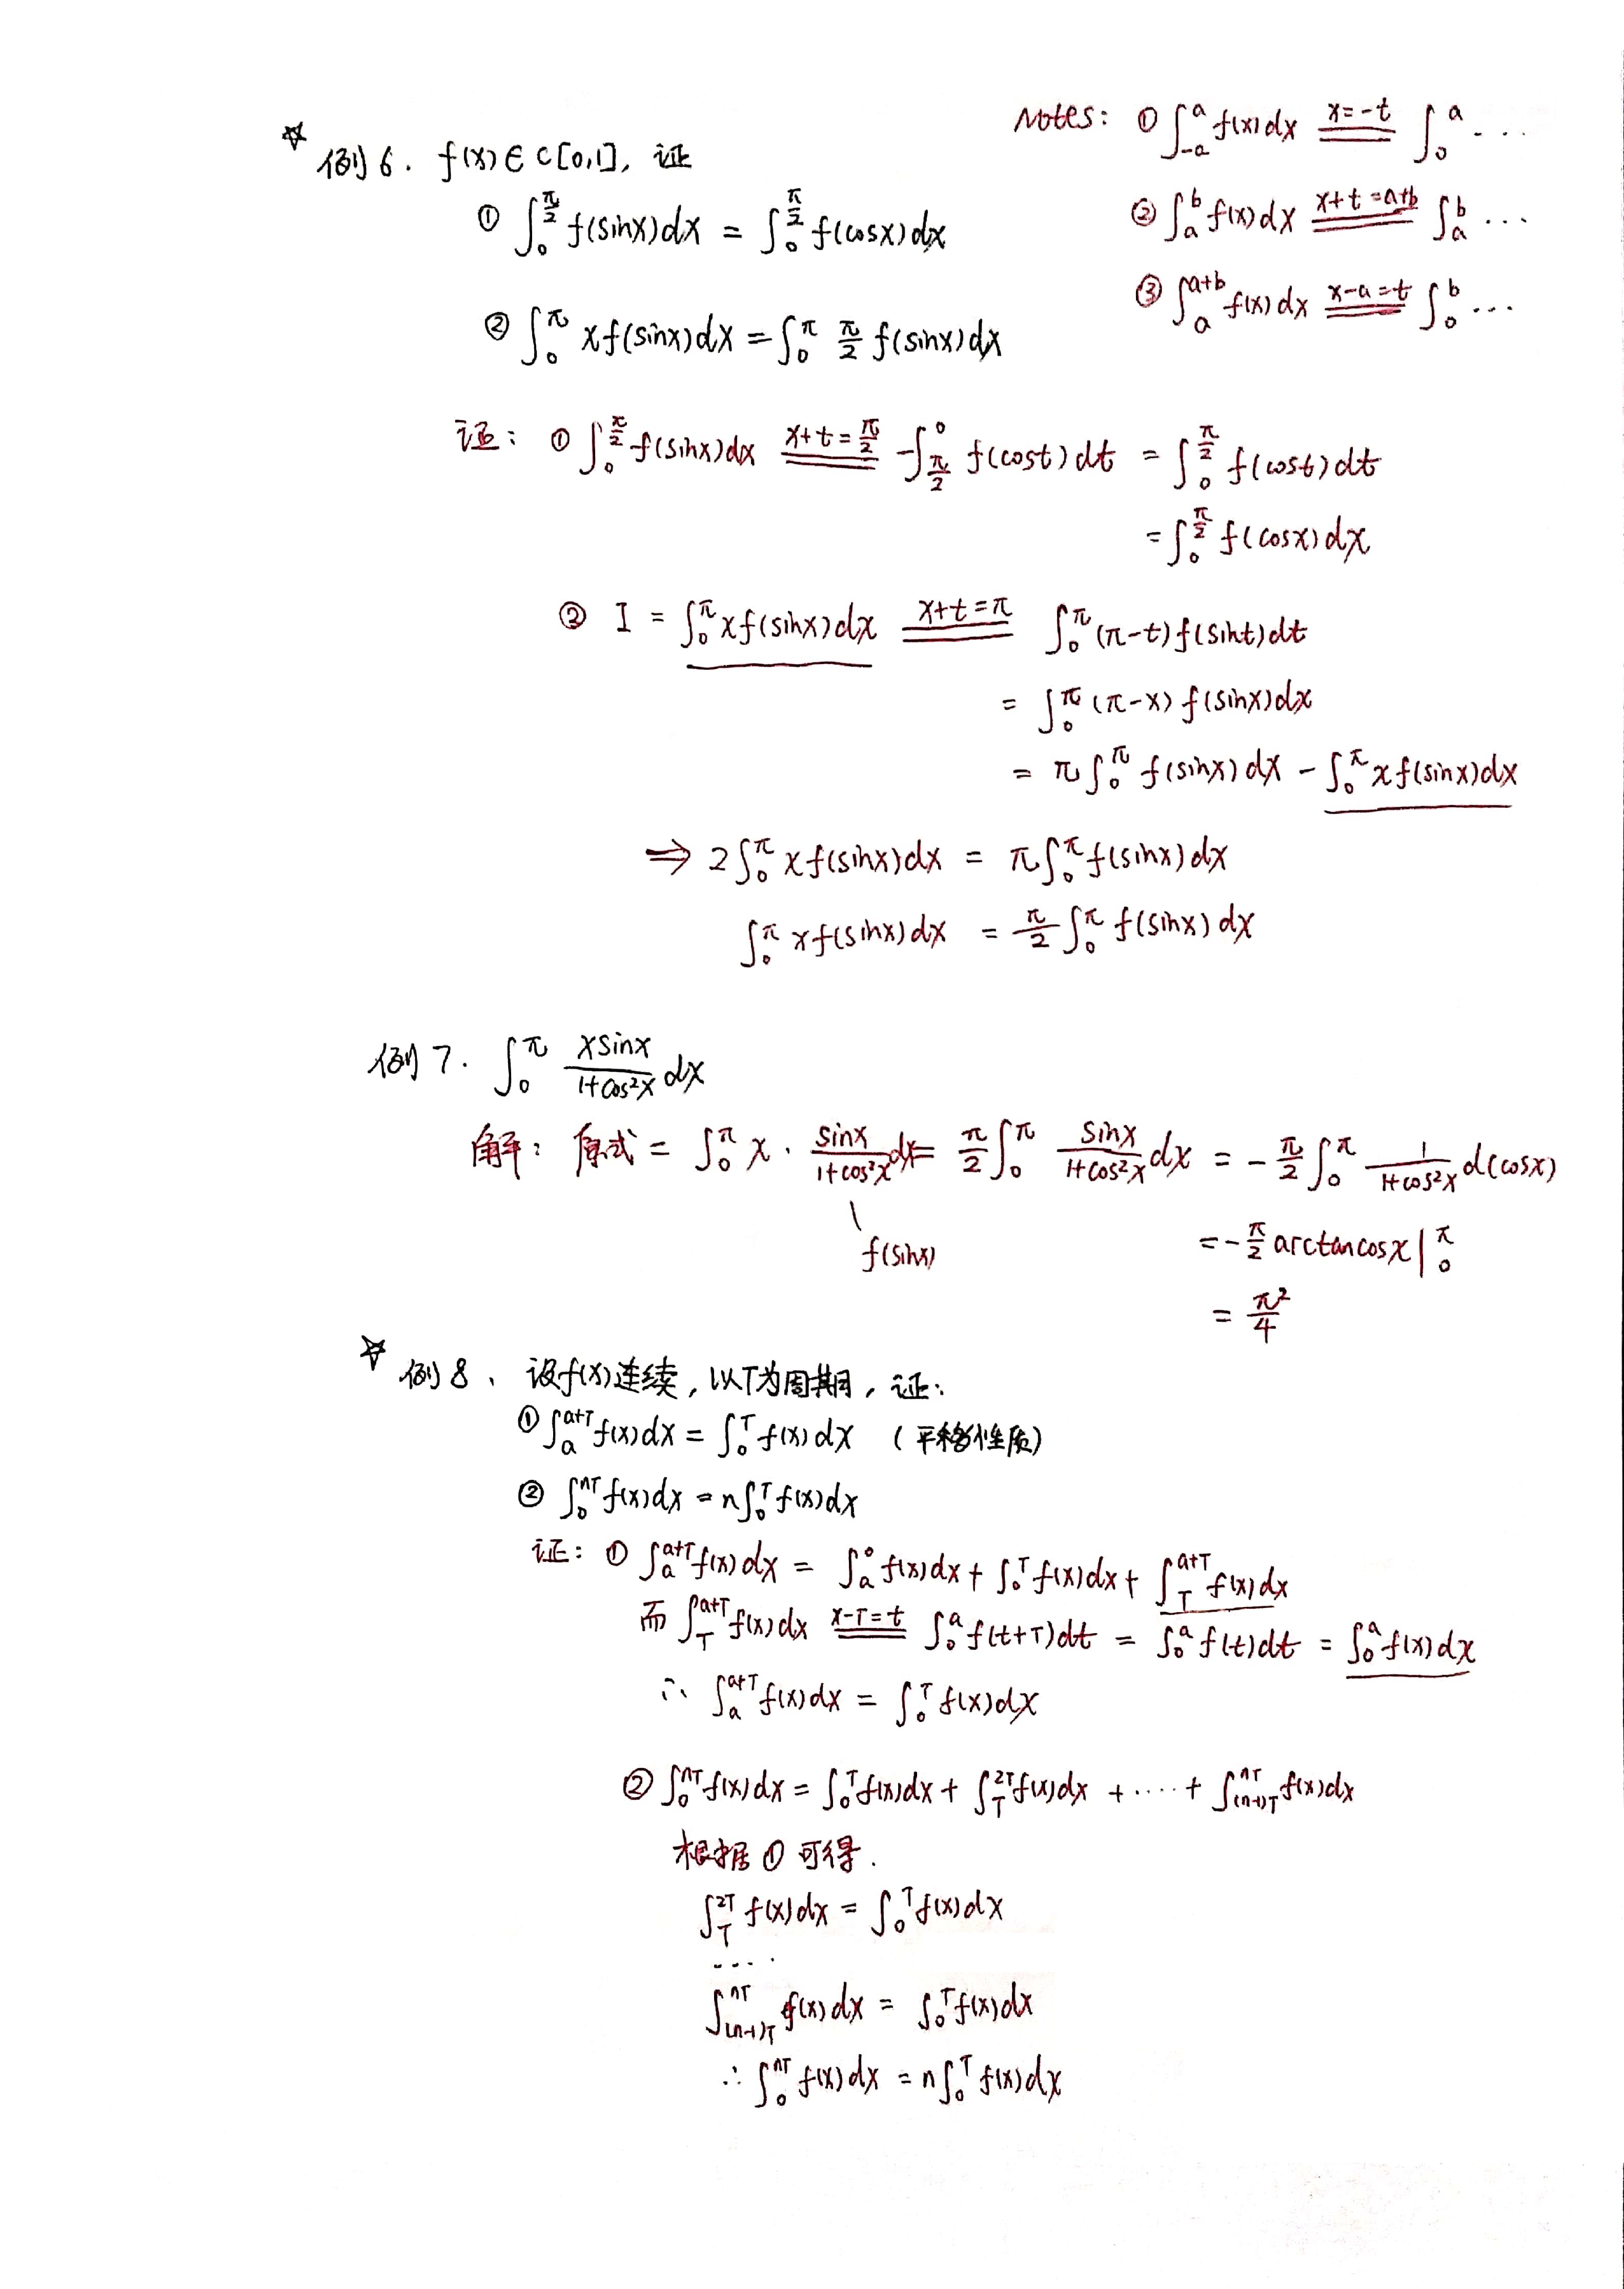 Notes: ① ∫_{-a}^{a} f(x)dx \xlongequal{x=-t} ∫_0^a ...
② ∫_a^b f(x)dx \xlongequal{x+t=a+b} ∫_a^b ...
③ ∫_a^{a+b} f(x)dx \xlongequal{x-a=t} ∫_0^b ...
☆ 例6. f(x)∈C[0,1], 证
① ∫_0^{π/2} f(sinx)dx = ∫_0^{π/2} f(cosx)dx
② ∫_0^π xf(sinx)dx = ∫_0^π π/2 f(sinx)dx
证: ① ∫_0^{π/2} f(sinx)dx \xlongequal{x+t=π/2} -∫_{π/2}^0 f(cost)dt = ∫_0^{π/2} f(cost)dt
= ∫_0^{π/2} f(cosx)dx
② I = ∫_0^π xf(sinx)dx \xlongequal{x+t=π} ∫_0^π (π-t)f(sint)dt
= ∫_0^π (π-x)f(sinx)dx
= π∫_0^π f(sinx)dx - ∫_0^π xf(sinx)dx
⇒ 2∫_0^π xf(sinx)dx = π∫_0^π f(sinx)dx
∫_0^π xf(sinx)dx = π/2 ∫_0^π f(sinx)dx
例7. ∫_0^π \frac{xsinx}{1+cos²x} dx
解: 原式 = ∫_0^π x · \frac{sinx}{1+cos²x} dx = π/2 ∫_0^π \frac{sinx}{1+cos²x} dx = -π/2 ∫_0^π \frac{1}{1+cos²x} d(cosx)
f(sinx)
= -π/2 arctancosx |_0^π
= π²/4
☆ 例8、设f(x)连续, 以T为周期, 证:
① ∫_a^{a+T} f(x)dx = ∫_0^T f(x)dx (平移性质)
② ∫_0^{nT} f(x)dx = n∫_0^T f(x)dx
证: ① ∫_a^{a+T} f(x)dx = ∫_a^0 f(x)dx + ∫_0^T f(x)dx + ∫_T^{a+T} f(x)dx
而 ∫_T^{a+T} f(x)dx \xlongequal{x-T=t} ∫_0^a f(t+T)dt = ∫_0^a f(t)dt = ∫_0^a f(x)dx
∴ ∫_a^{a+T} f(x)dx = ∫_0^T f(x)dx
② ∫_0^{nT} f(x)dx = ∫_0^T f(x)dx + ∫_T^{2T} f(x)dx + ····· + ∫_{(n-1)T}^{nT} f(x)dx
根据①可得.
∫_T^{2T} f(x)dx = ∫_0^T f(x)dx
....
∫_{(n-1)T}^{nT} f(x)dx = ∫_0^T f(x)dx
∴ ∫_0^{nT} f(x)dx = n∫_0^T f(x)dx